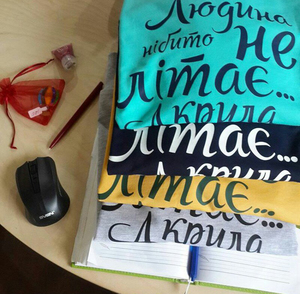 Людина
нібито не
літає...
А крила
літає...
А крила
літає...
А крила